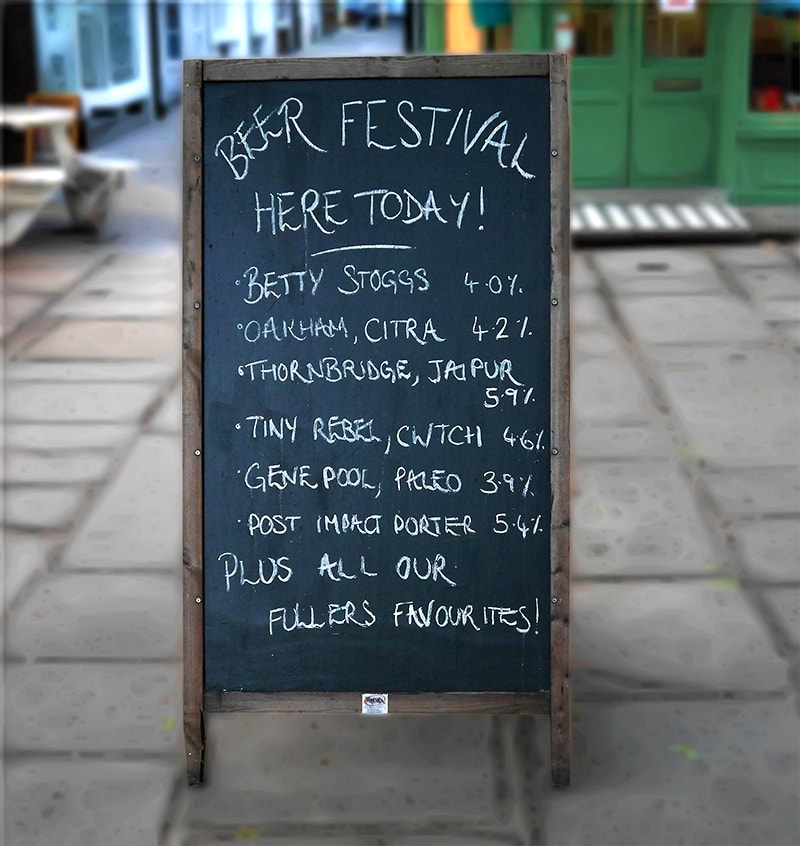 BEER FESTIVAL
HERE TODAY!
•BETTY STOGGS 4.0%
•OAKHAM, CITRA 4.2%
•THORNBRIDGE, JAIPUR
5.9%
•TINY REBEL, CWTCH 4.6%
•GENE POOL, PALEO 3.9%
•POST IMPACT PORTER 5.4%
PLUS ALL OUR
FULLERS FAVOURITES!